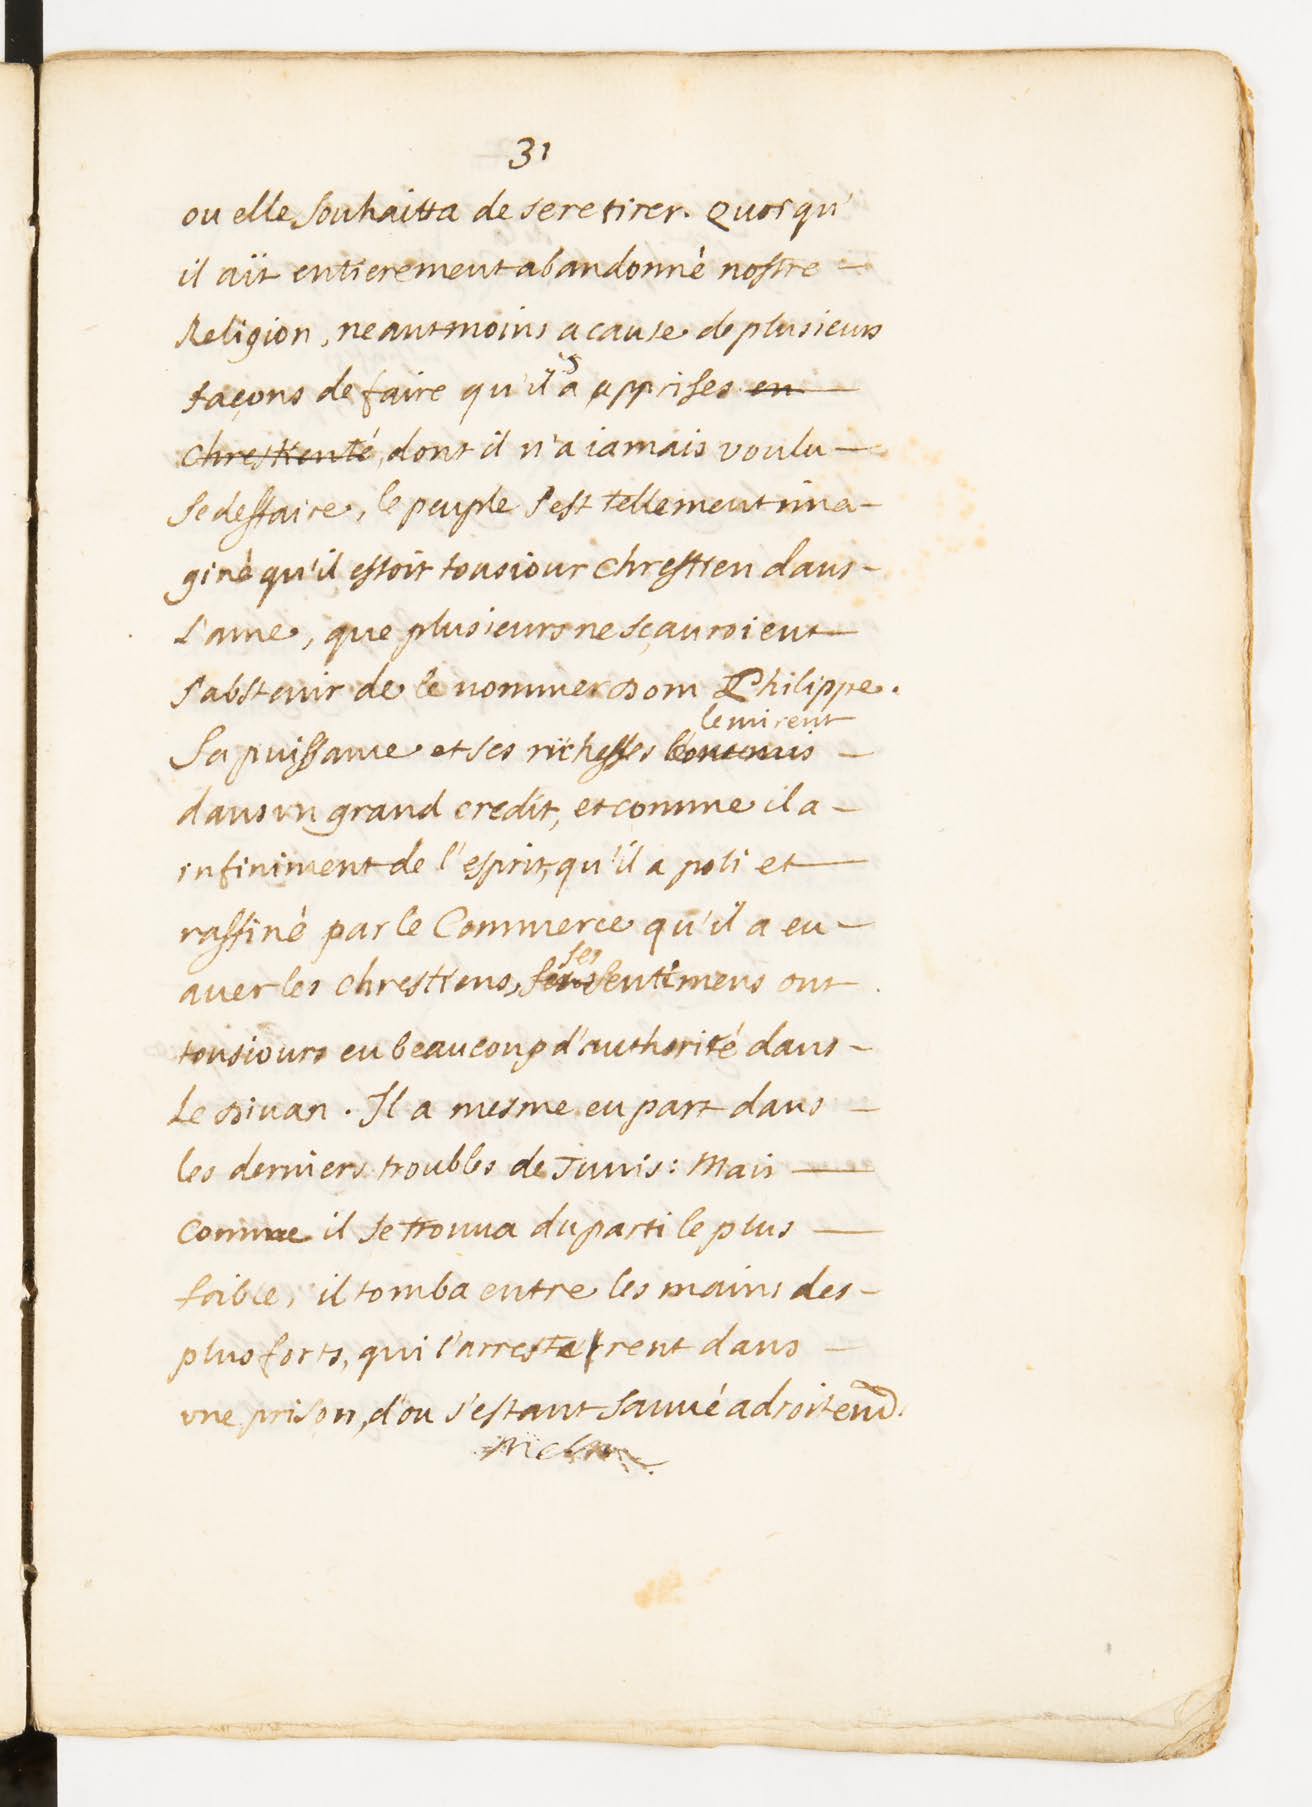 31
ou elle souhaitta de se retirer. Quoi qu'
il aït entierement abandonné nostre —
Religion, neantmoins a cause de plusieurs
façons de faire qu'il a apprises en —
chrestienté, dont il n'a iamais voulu —
se deffaire, le peuple s'est tellement ima-
giné qu'il estoit tousiour chrestien dans -
L'ame, que plusieurs ne sçauroient —
s'abstenir de le nommer Dom Philippe.
le mirent
Sa puissance et ses richesses l'ont mis —
dans vn grand credit, et comme il a -
infiniment de l'esprit, qu'il a poli et —
raffiné par le Commerce qu'il a eu -
ses
auec les chrestiens, ses sentimens ont
tousiours eu beaucoup d'authorité dans -
Le Diuan. Il a mesme eu part dans —
les derniers troubles de Tunis: Mais —
Comme il se trouua du parti le plus —
foible, il tomba entre les mains des -
plus forts, qui l'arresterent dans —
vne prison, d'ou s'estant sauué adroitem͠t.